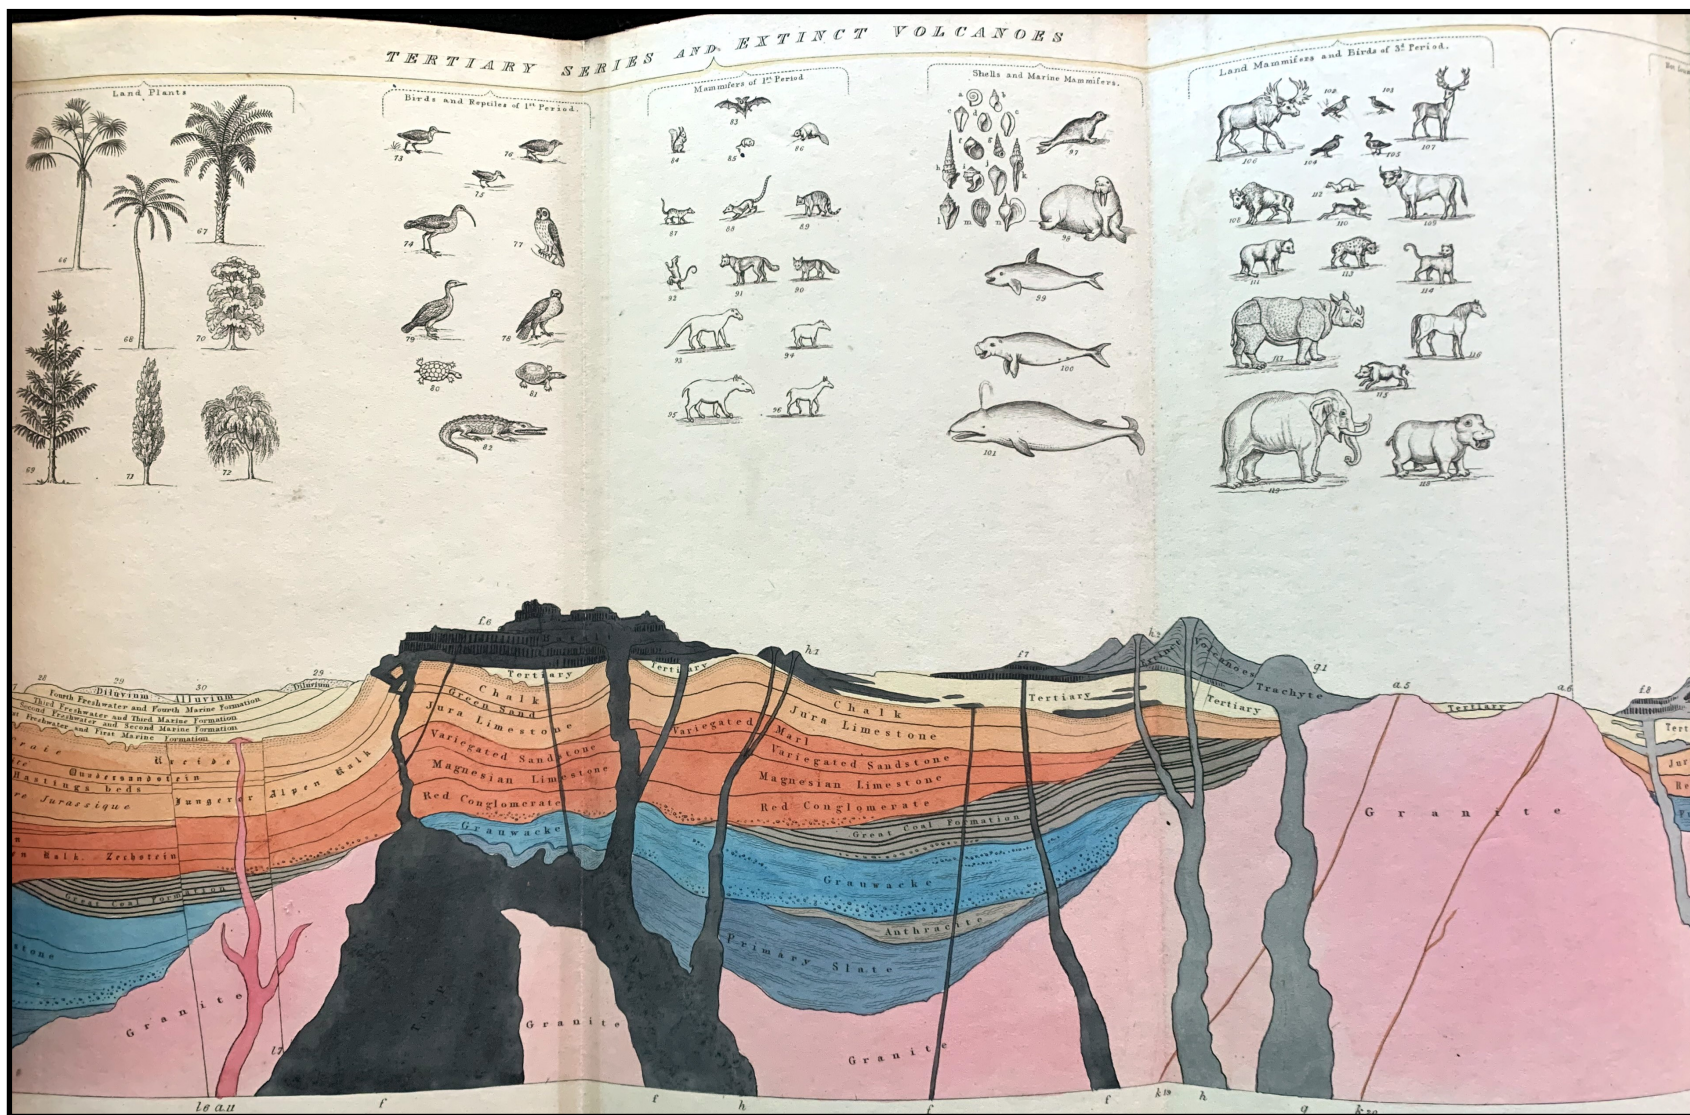 TERTIARY SERIES AND EXTINCT VOLCANOES
Land Plants
66
67
68
69
70
71
72
Birds and Reptiles of 1st Period.
73
76
75
74
77
79
78
80
81
82
Mammifers of 1st Period
83
84
85
86
87
88
89
92
91
90
93
94
95
96
Shells and Marine Mammifers.
a
b
c
d
e
f
g
h
i
j
k
l
m
n
97
98
99
100
101
Land Mammifers and Birds of 3d Period.
106
102
103
107
104
105
108
112
110
109
111
113
114
117
116
115
119
118
28
29
Diluvium
30
Alluvium
29
Diluvium
Fourth Freshwater and Fourth Marine Formation
Third Freshwater and Third Marine Formation
Second Freshwater and Second Marine Formation
Freshwater and First Marine Formation
raie
Kreide
Quadersandstein
Hastings beds
re Jurassique
Jungerer Alpen Kalk
Kalk. Zechstein
Great Coal Formation
stone
Granite
f.6
Basalt
Tertiary
Chalk
Green Sand
Jura Limestone
Variegated Sandstone
Magnesian Limestone
Red Conglomerate
Grauwacke
Granite
Tertiary
h.1
Chalk
Jura Limestone
Variegated Marl
Variegated Sandstone
Magnesian Limestone
Red Conglomerate
Great Coal Formation
Grauwacke
Anthracite
Primary Slate
Granite
f.7
Tertiary
h.2
Extinct Volcanoes
g.1
Trachyte
Tertiary
a.5
a.6
Tertiary
f.8
Granite
Tert
Jur
Re
l.7
l6 a.11
f
f
h
f
f
k19
h
g
k20